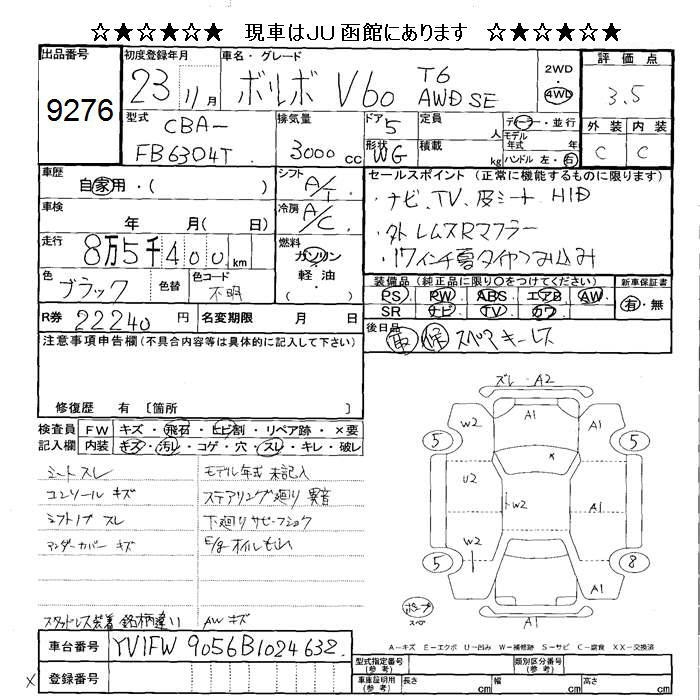 ☆★☆★☆★ 現車はJU函館にあります ☆★☆★☆★
出品番号
9276
初度登録年月
23 11月
車名・グレード
ボルボ V60 T6 AWD SE
2WD
4WD
評価点
3.5
型式
CBA-
FB6304T
排気量
3000 cc
ドア
5
形状
WG
定員
人
積載
kg
ディーラー・並行
モデル年式 年
ハンドル 左・右
外装 内装
C C
車歴
自家用・( )
シフト
A/T
車検
年 月( 日)
冷房
A/C
走行
8万5千400km
燃料
ガソリン
軽油
( )
色
ブラック
色替
色コード
不明
セールスポイント (正常に機能するものに限ります)
・ナビ、TV、皮シート HID
・外レムスRマフラー
・17インチ夏タイヤつみ込み
装備品(純正品に限り○をつけてください)
PS PW ABS エアB AW
SR ナビ TV カワ
新車保証書
有・無
R券 22240 円
名変期限 月 日
後日品
スペアキーレス
注意事項申告欄(不具合内容等は具体的に記入して下さい)
修復歴 有 〔箇所 〕
検査員
記入欄
FW キズ・飛石・ヒビ割・リペア跡・×要
内装 キズ・汚レ・コゲ・穴・スレ・キレ・破レ
シートスレ
コンソールキズ
シフトノブスレ
アンダーカバーキズ
スタッドレス装着 銘柄違い
モデル年式 未記入
ステアリング廻り異音
下廻りサビ・フショク
E/g オイルもれ
AWキズ
ズレ・A2
W2
A1
A1
5
5
U2
W2
A1
W2
A1
5
8
A1
A1
スペア
A-キズ E-エクボ U-凹み W-補修跡 S-サビ C-腐食 XX-交換済
車台番号 YV1FW9056B1024632
登録番号
X
型式指定番号
(参考)
類別区分番号
(参考)
車庫証明用
(参考)
長さ cm 幅 cm 高さ cm